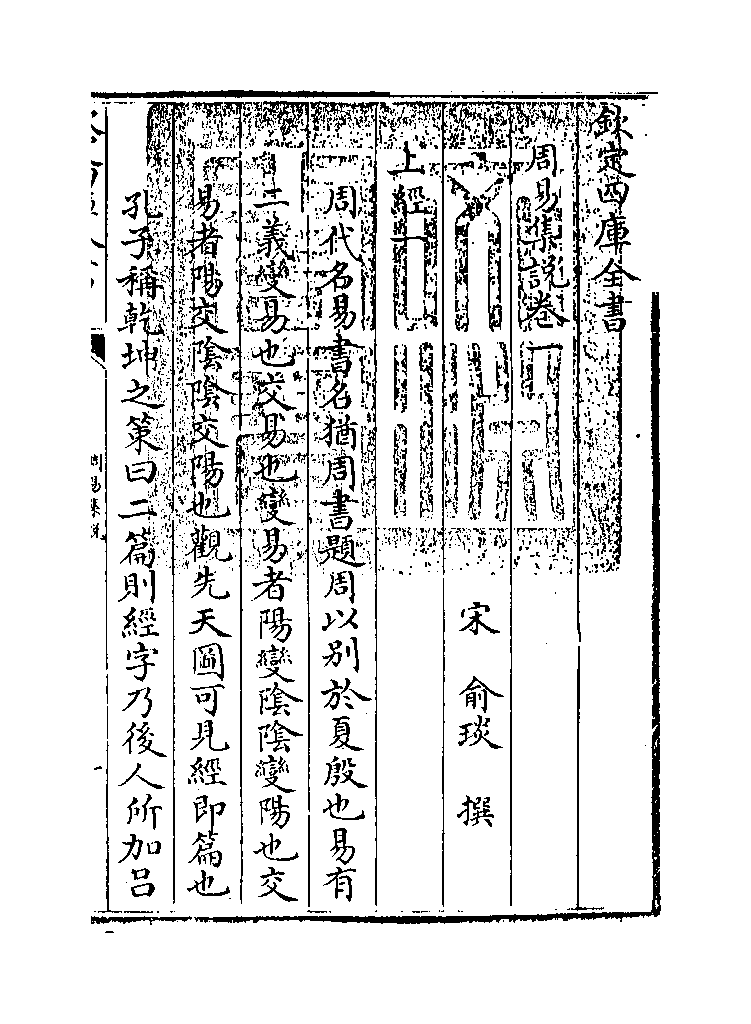 欽定四庫全書
周易集説卷一
宋 俞琰 撰
上經一
周代名易書名猶周書題周以别於夏殷也易有
二義變易也交易也變易者陽變陰陰變陽也交
易者陽交陰陰交陽也觀先天圖可見經即篇也
孔子稱乾坤之策曰二篇則經字乃後人所加吕
周易集説
一